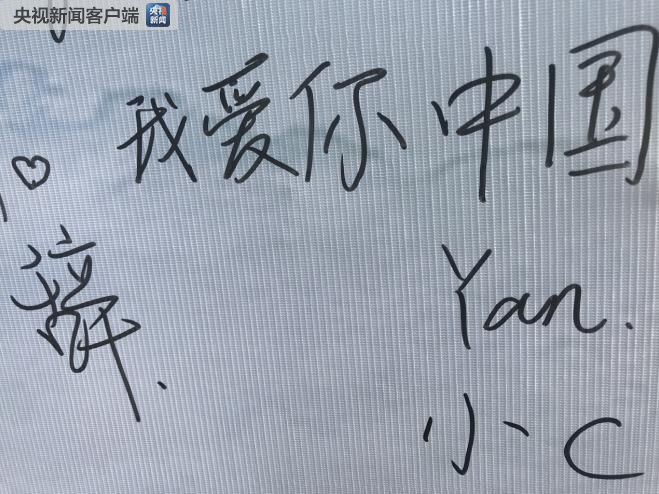 央视新闻客户端 央视新闻
我爱你中国
Yan.
小C